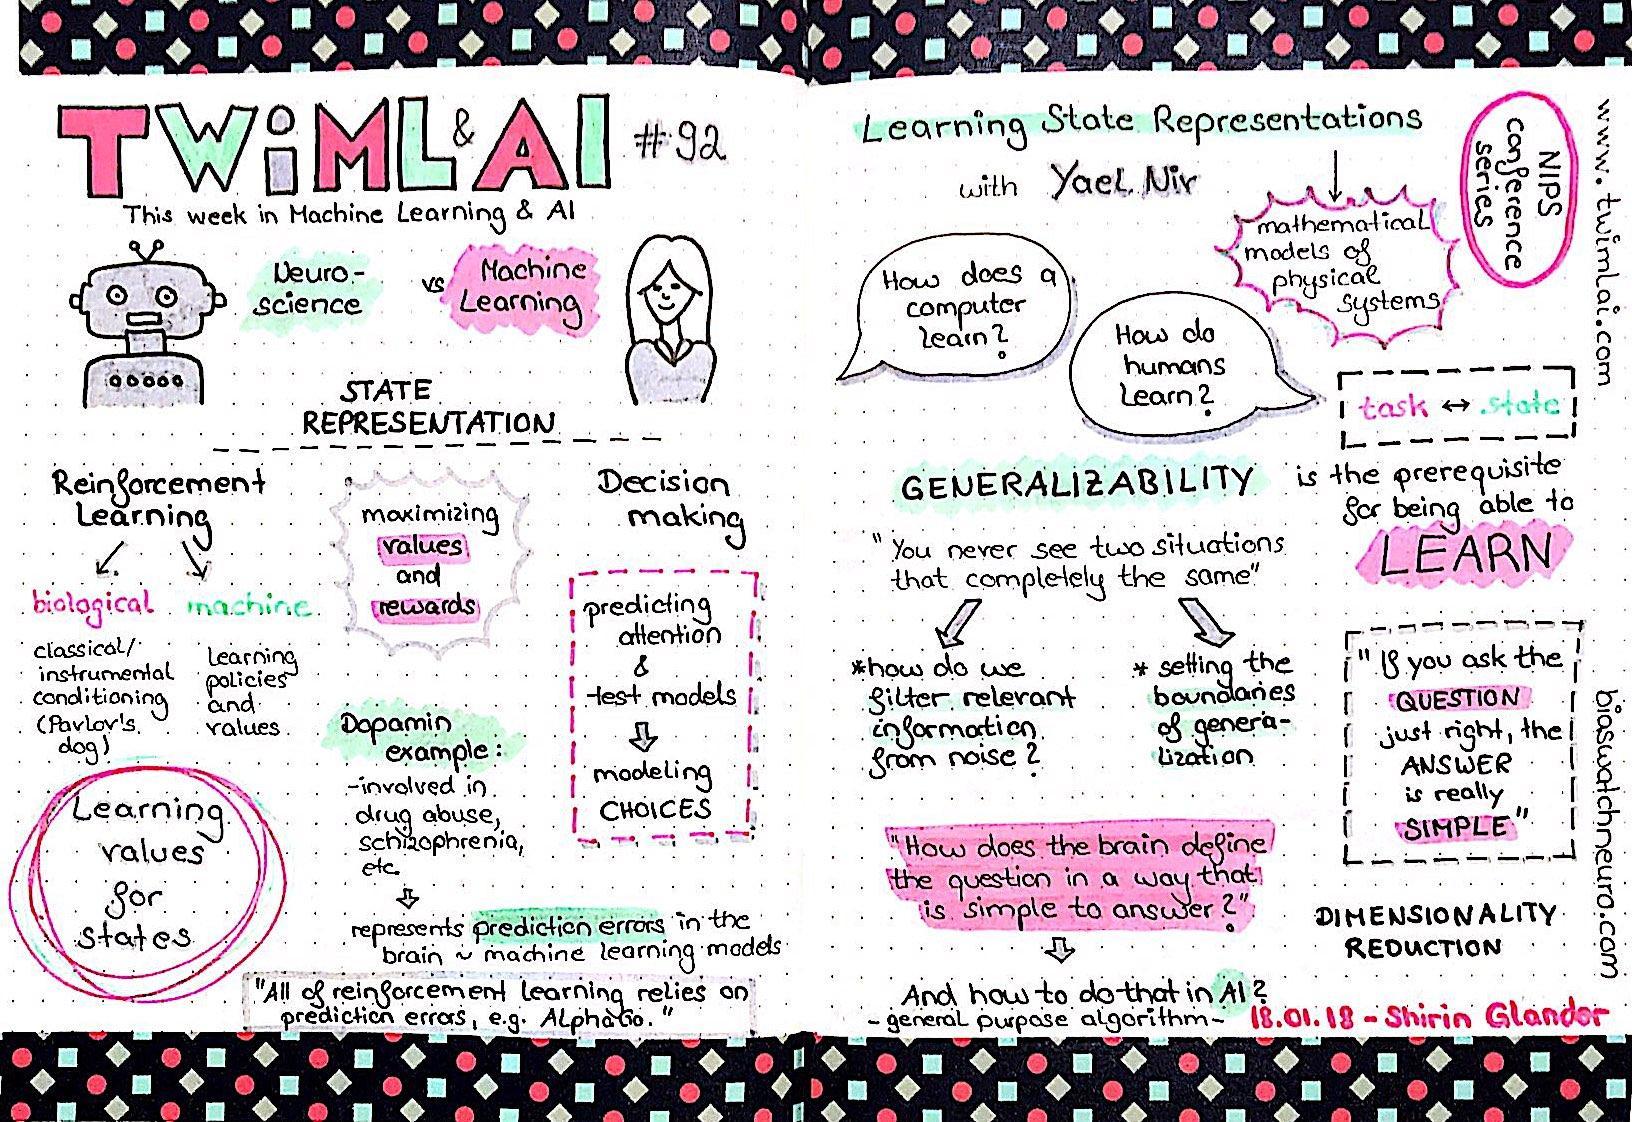 TWiML&AI #92
This week in Machine Learning & AI
Neuro-
science
vs
Machine
Learning
STATE
REPRESENTATION
Reinforcement
Learning
biological
classical/
instrumental
conditioning
(Pavlov's
dog)
machine
learning
policies
and
values
Learning
values
for
states
maximizing
values
and
rewards
Dopamin
example:
-involved in
drug abuse,
schizophrenia,
etc.
represents prediction errors in the
brain ~ machine learning models
Decision
making
predicting
attention
&
test models
modeling
CHOICES
"All of reinforcement learning relies on
prediction errors, e.g. AlphaGo."
Learning State Representations
with Yael Niv
mathematical
models of
physical
systems
NIPS
conference
series
www.twimlai.com
How does a
computer
learn?
How do
humans
learn?
task ↔ state
GENERALIZABILITY is the prerequisite
for being able to
LEARN
"You never see two situations
that completely the same"
*how do we
filter relevant
information
from noise?
* setting the
boundaries
of genera-
lization
"If you ask the
QUESTION
just right, the
ANSWER
is really
SIMPLE"
"How does the brain define
the question in a way that
is simple to answer?"
DIMENSIONALITY
REDUCTION
And how to do that in AI?
- general purpose algorithm -
18.01.18 - Shirin Glander
biaswatchneuro.com